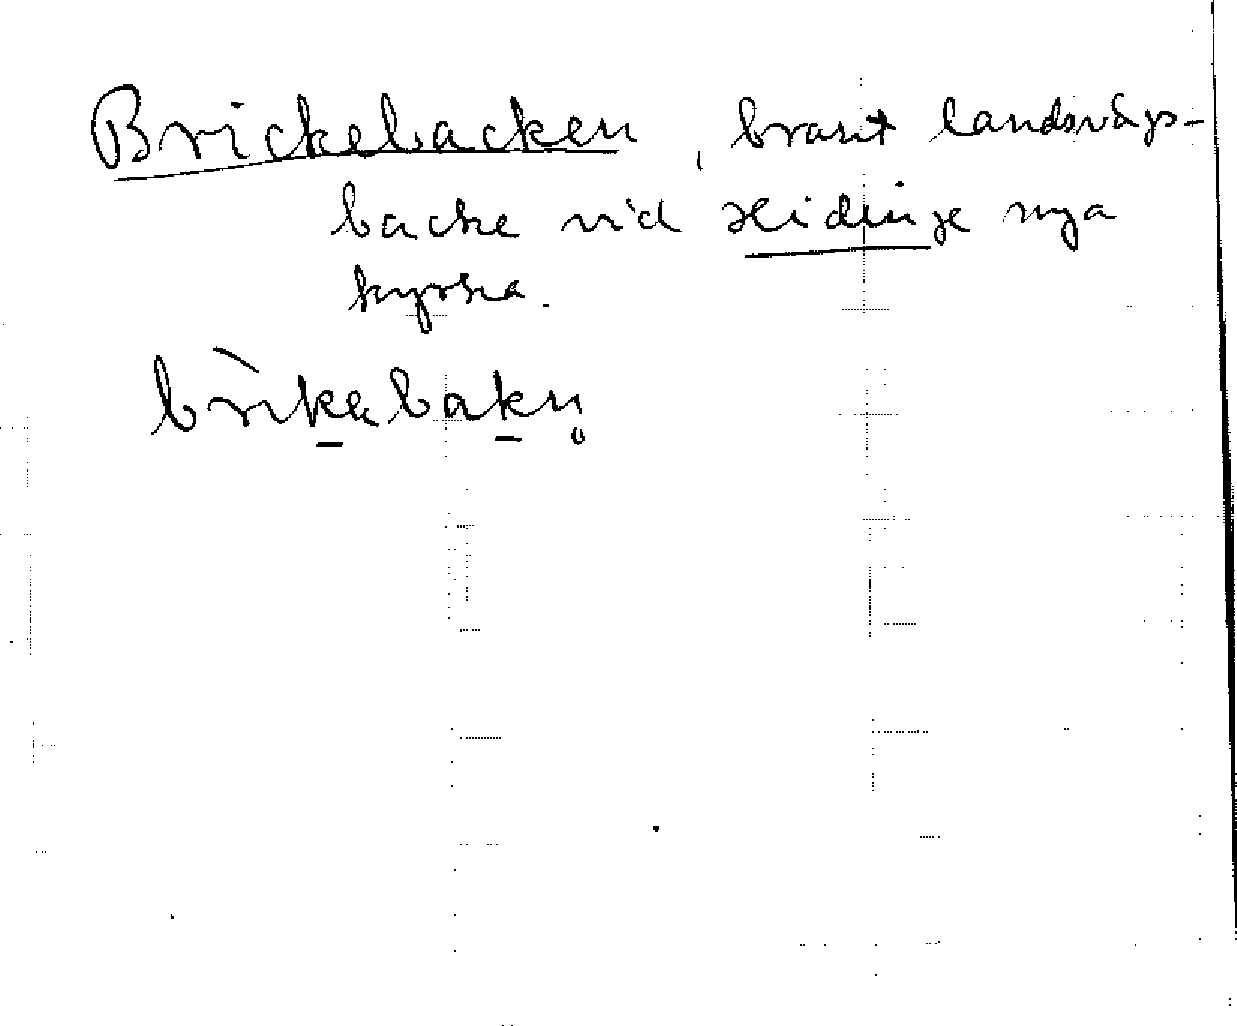 Brickebacken, brant landsvägs-
backe vid Heidinge nya
kyrka.
brìkebakn̥